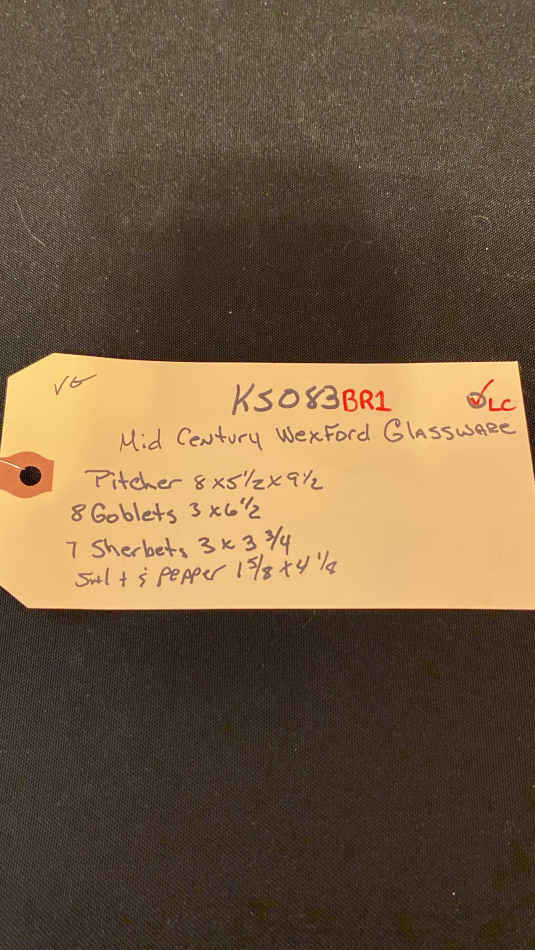 VG
KS083BR1 VLC
Mid Century Wexford Glassware
Pitcher 8 x 5 1/2 x 9 1/2
8 Goblets 3 x 6 1/2
7 Sherbets 3 x 3 3/4
Salt & pepper 1 5/8 x 4 1/8